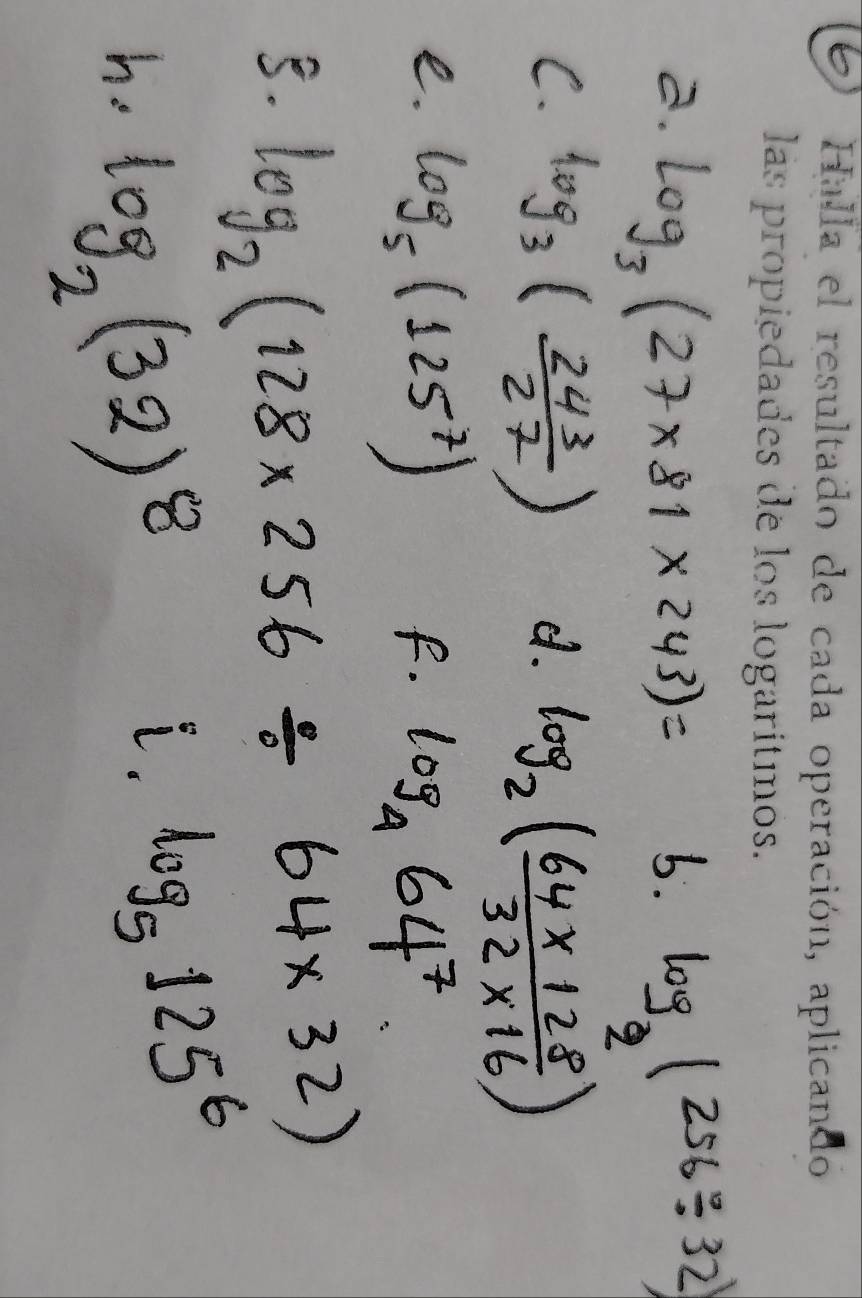 6 Halla el resultado de cada operación, aplicando
las propiedades de los logaritmos.
a. log₃ (27 × 81 × 243) = b. log₂ (256 ÷ 32)
c. log₃ (243/27) d. log₂ (64 × 128/32 × 16)
e. log₅ (125⁷) f. log₄ 64⁷.
g. log₂ (128 × 256 ÷ 64 × 32)
h. log₂ (32)⁸ i. log₅ 125⁶